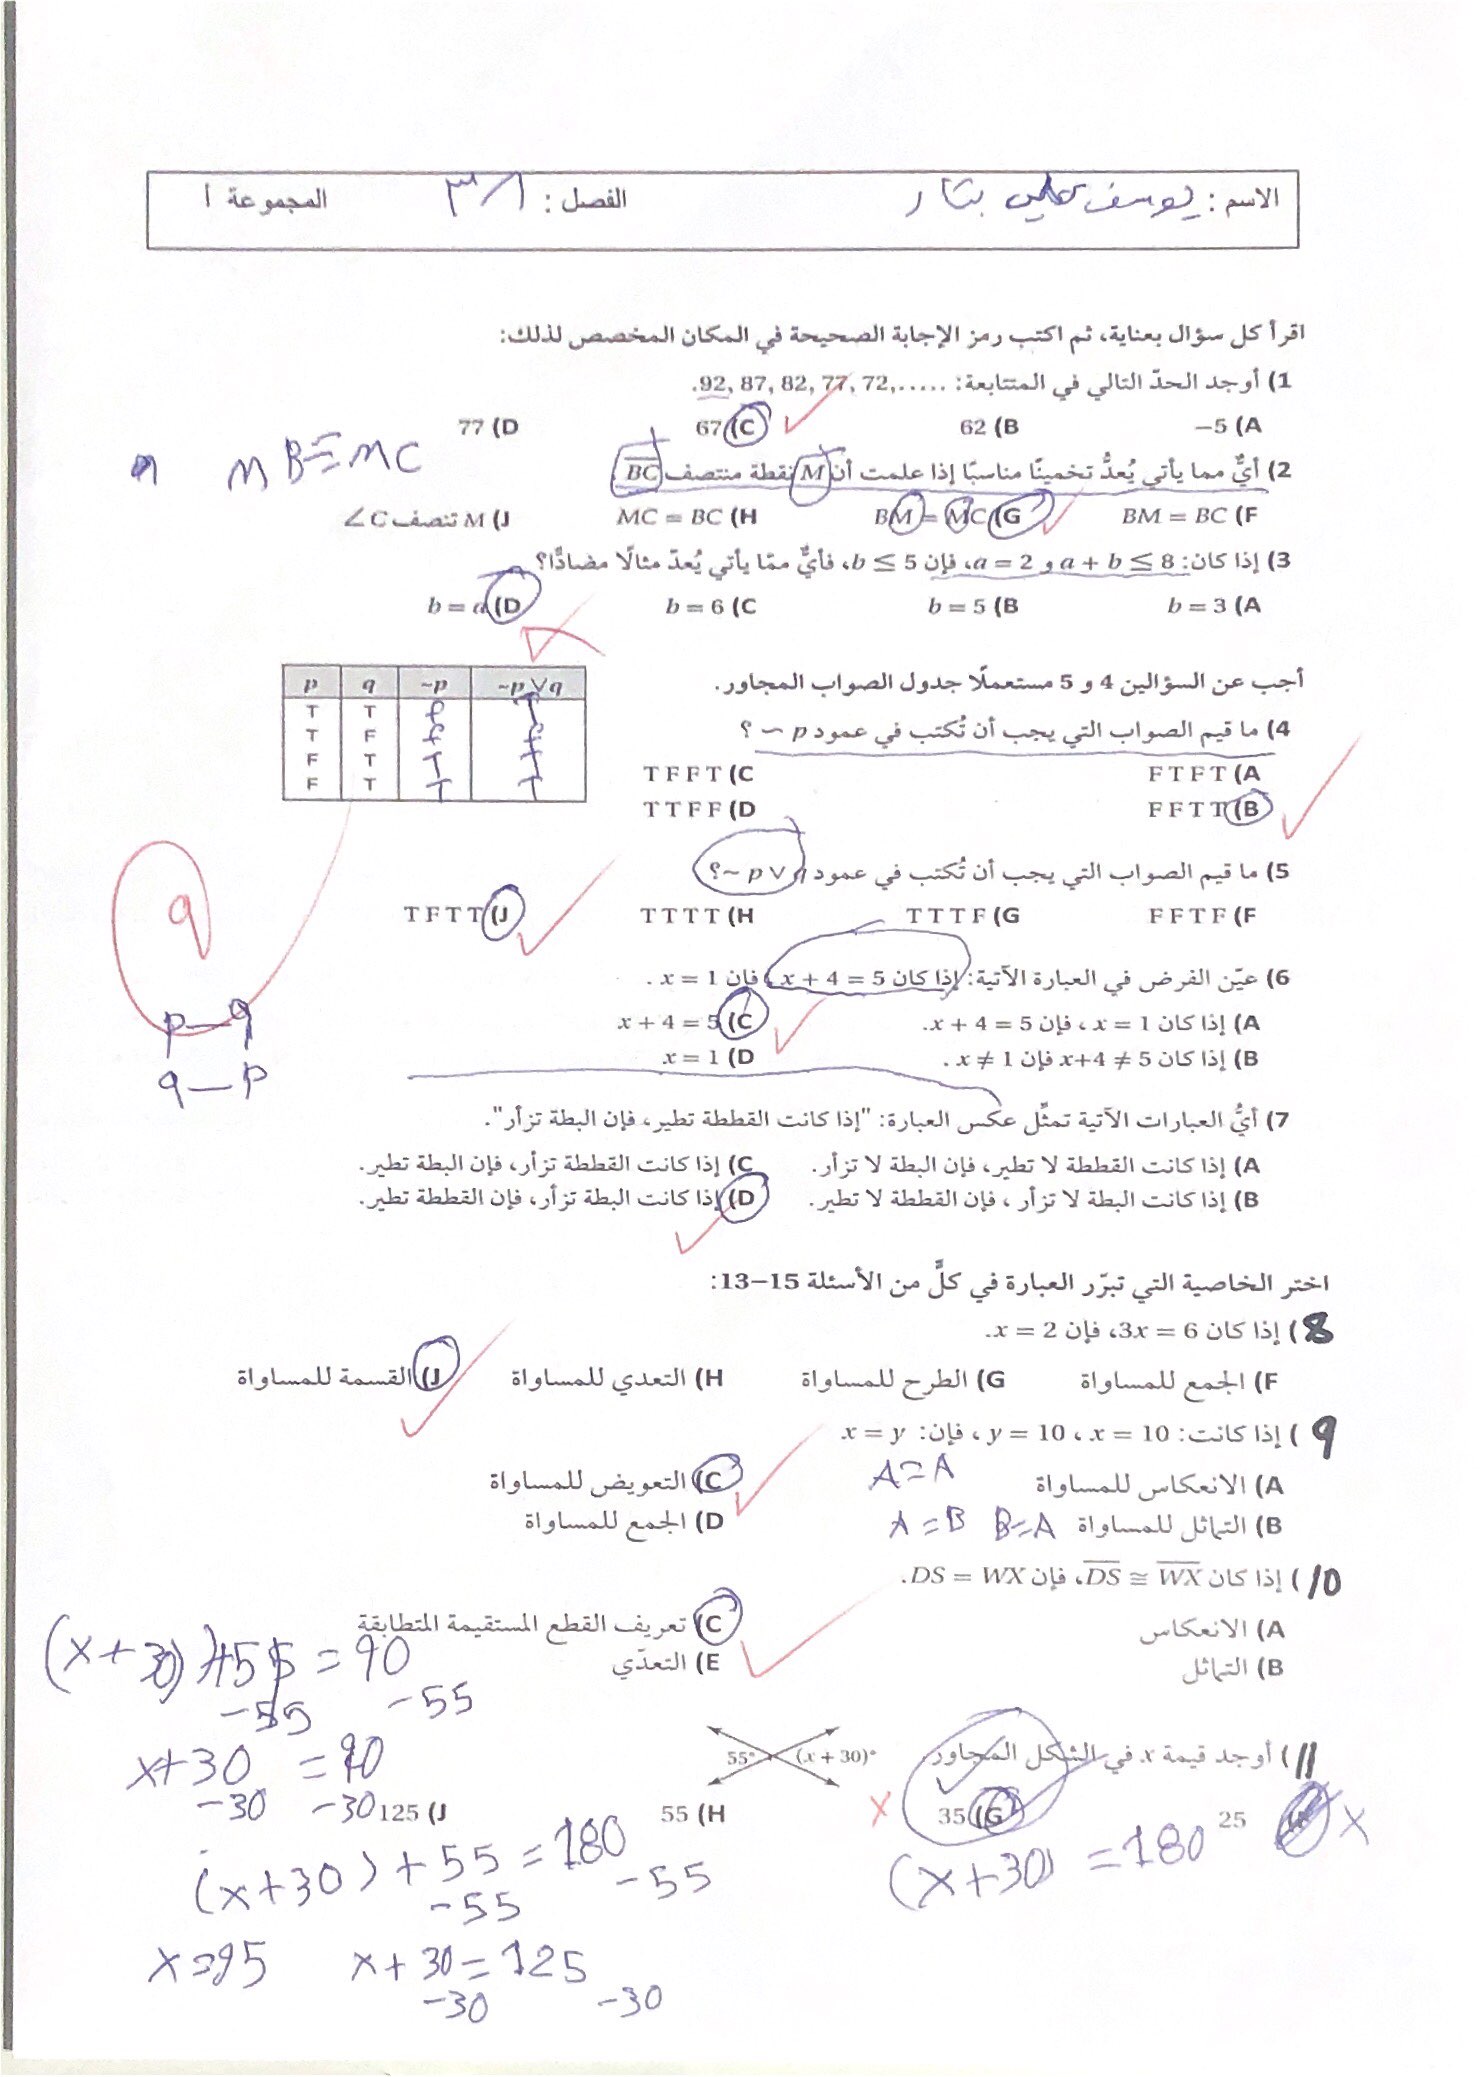 الاسم : يوسف علي بشار الفصل : ٣/١ المجموعة أ
اقرأ كل سؤال بعناية، ثم اكتب رمز الإجابة الصحيحة في المكان المخصص لذلك:
1) أوجد الحدّ التالي في المتتابعة: .92, 87, 82, 77, 72,.....
A) −5 B) 62 C) 67 D) 77
M B ≅ M C
2) أيٌّ مما يأتي يُعدُّ تخمينًا مناسبًا إذا علمت أن M نقطة منتصف BC.
F) BM = BC G) BM = MC H) MC = BC J) M تنصف ∠C
3) إذا كان: a + b ≤ 8 و a = 2، فإن b ≤ 5، فأيٌّ ممّا يأتي يُعدّ مثالًا مضادًّا؟
A) b = 3 B) b = 5 C) b = 6 D) b = a
أجب عن السؤالين 4 و 5 مستعملًا جدول الصواب المجاور.
p q ~p ~p ∨ q
T T F T
T F F F
F T T T
F T T T
4) ما قيم الصواب التي يجب أن تُكتب في عمود ~ p ؟
A) F T F T C) T F F T
B) F F T T D) T T F F
5) ما قيم الصواب التي يجب أن تُكتب في عمود ~ p ∨ q؟
F) F F T F G) T T T F H) T T T T J) T F T T
9
6) عيّن الفرض في العبارة الآتية: إذا كان x + 4 = 5 ، فإن x = 1 .
A) إذا كان x = 1 ، فإن x + 4 = 5. C) x + 4 = 5
B) إذا كان x+4 ≠ 5 فإن x ≠ 1 . D) x = 1
p — q
q — p
7) أيُّ العبارات الآتية تمثِّل عكس العبارة: "إذا كانت القططة تطير، فإن البطة تزأر".
A) إذا كانت القططة لا تطير، فإن البطة لا تزأر. C) إذا كانت القططة تزأر، فإن البطة تطير.
B) إذا كانت البطة لا تزأر ، فإن القططة لا تطير. D) إذا كانت البطة تزأر، فإن القططة تطير.
اختر الخاصية التي تبرّر العبارة في كلٍّ من الأسئلة 15–13:
8 ) إذا كان 3x = 6، فإن x = 2.
F) الجمع للمساواة G) الطرح للمساواة H) التعدي للمساواة J) القسمة للمساواة
9 ) إذا كانت: x = 10 ، y = 10 ، فإن: x = y
A) الانعكاس للمساواة A = A C) التعويض للمساواة
B) التماثل للمساواة A = B B = A D) الجمع للمساواة
10 ) إذا كان DS ≅ WX، فإن DS = WX.
A) الانعكاس C) تعريف القطع المستقيمة المتطابقة
B) التماثل E) التعدّي
(x + 30) + 55 = 90
−55 −55
11 ) أوجد قيمة x في الشكل المجاور.
55° (x + 30)°
x + 30 = 90
−30 −30
25 G) 35 H) 55 J) 125
x x
(x + 30) = 180
(x + 30) + 55 = 180
−55 −55
x = 95 x + 30 = 125
−30 −30